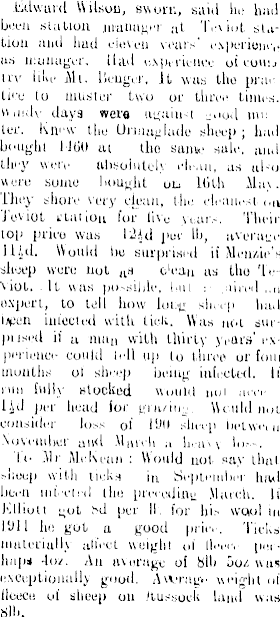 Edward Wilson, sworn, said he had
been station manager at Teviot sta-
tion and had eleven years' experience
as manager. Had experience of coun-
try like Mt. Benger. It was the prac-
tice to muster two or three times.
Windy days were against good mus-
ter. Knew the Ormaglade sheep; had
bought 1460 at the same sale, and
they were absolutely clean, as also
were some bought on 16th May.
They shore very clean, the cleanest on
Teviot station for five years. Their
top price was 12½d per lb, average
11½d. Would be surprised if Menzie's
sheep were not as clean as the Te-
viot. It was possible, but required an
expert, to tell how long sheep had
been infected with tick. Was not sur-
prised if a man with thirty years' ex-
perience could tell up to three or four
months of sheep being infected. If
run fully stocked would not accept
1½d per head for grazing. Would not
consider loss of 190 sheep between
November and March a heavy loss.
To Mr McKean: Would not say that
sheep with ticks in September had
been infected the preceding March. If
Elliott got 8d per lb. for his wool in
1911 he got a good price. Ticks
materially affect weight of fleece per-
haps 4oz. An average of 8lb 5oz was
exceptionally good. Average weight of
fleece of sheep on tussock land was
8lb.